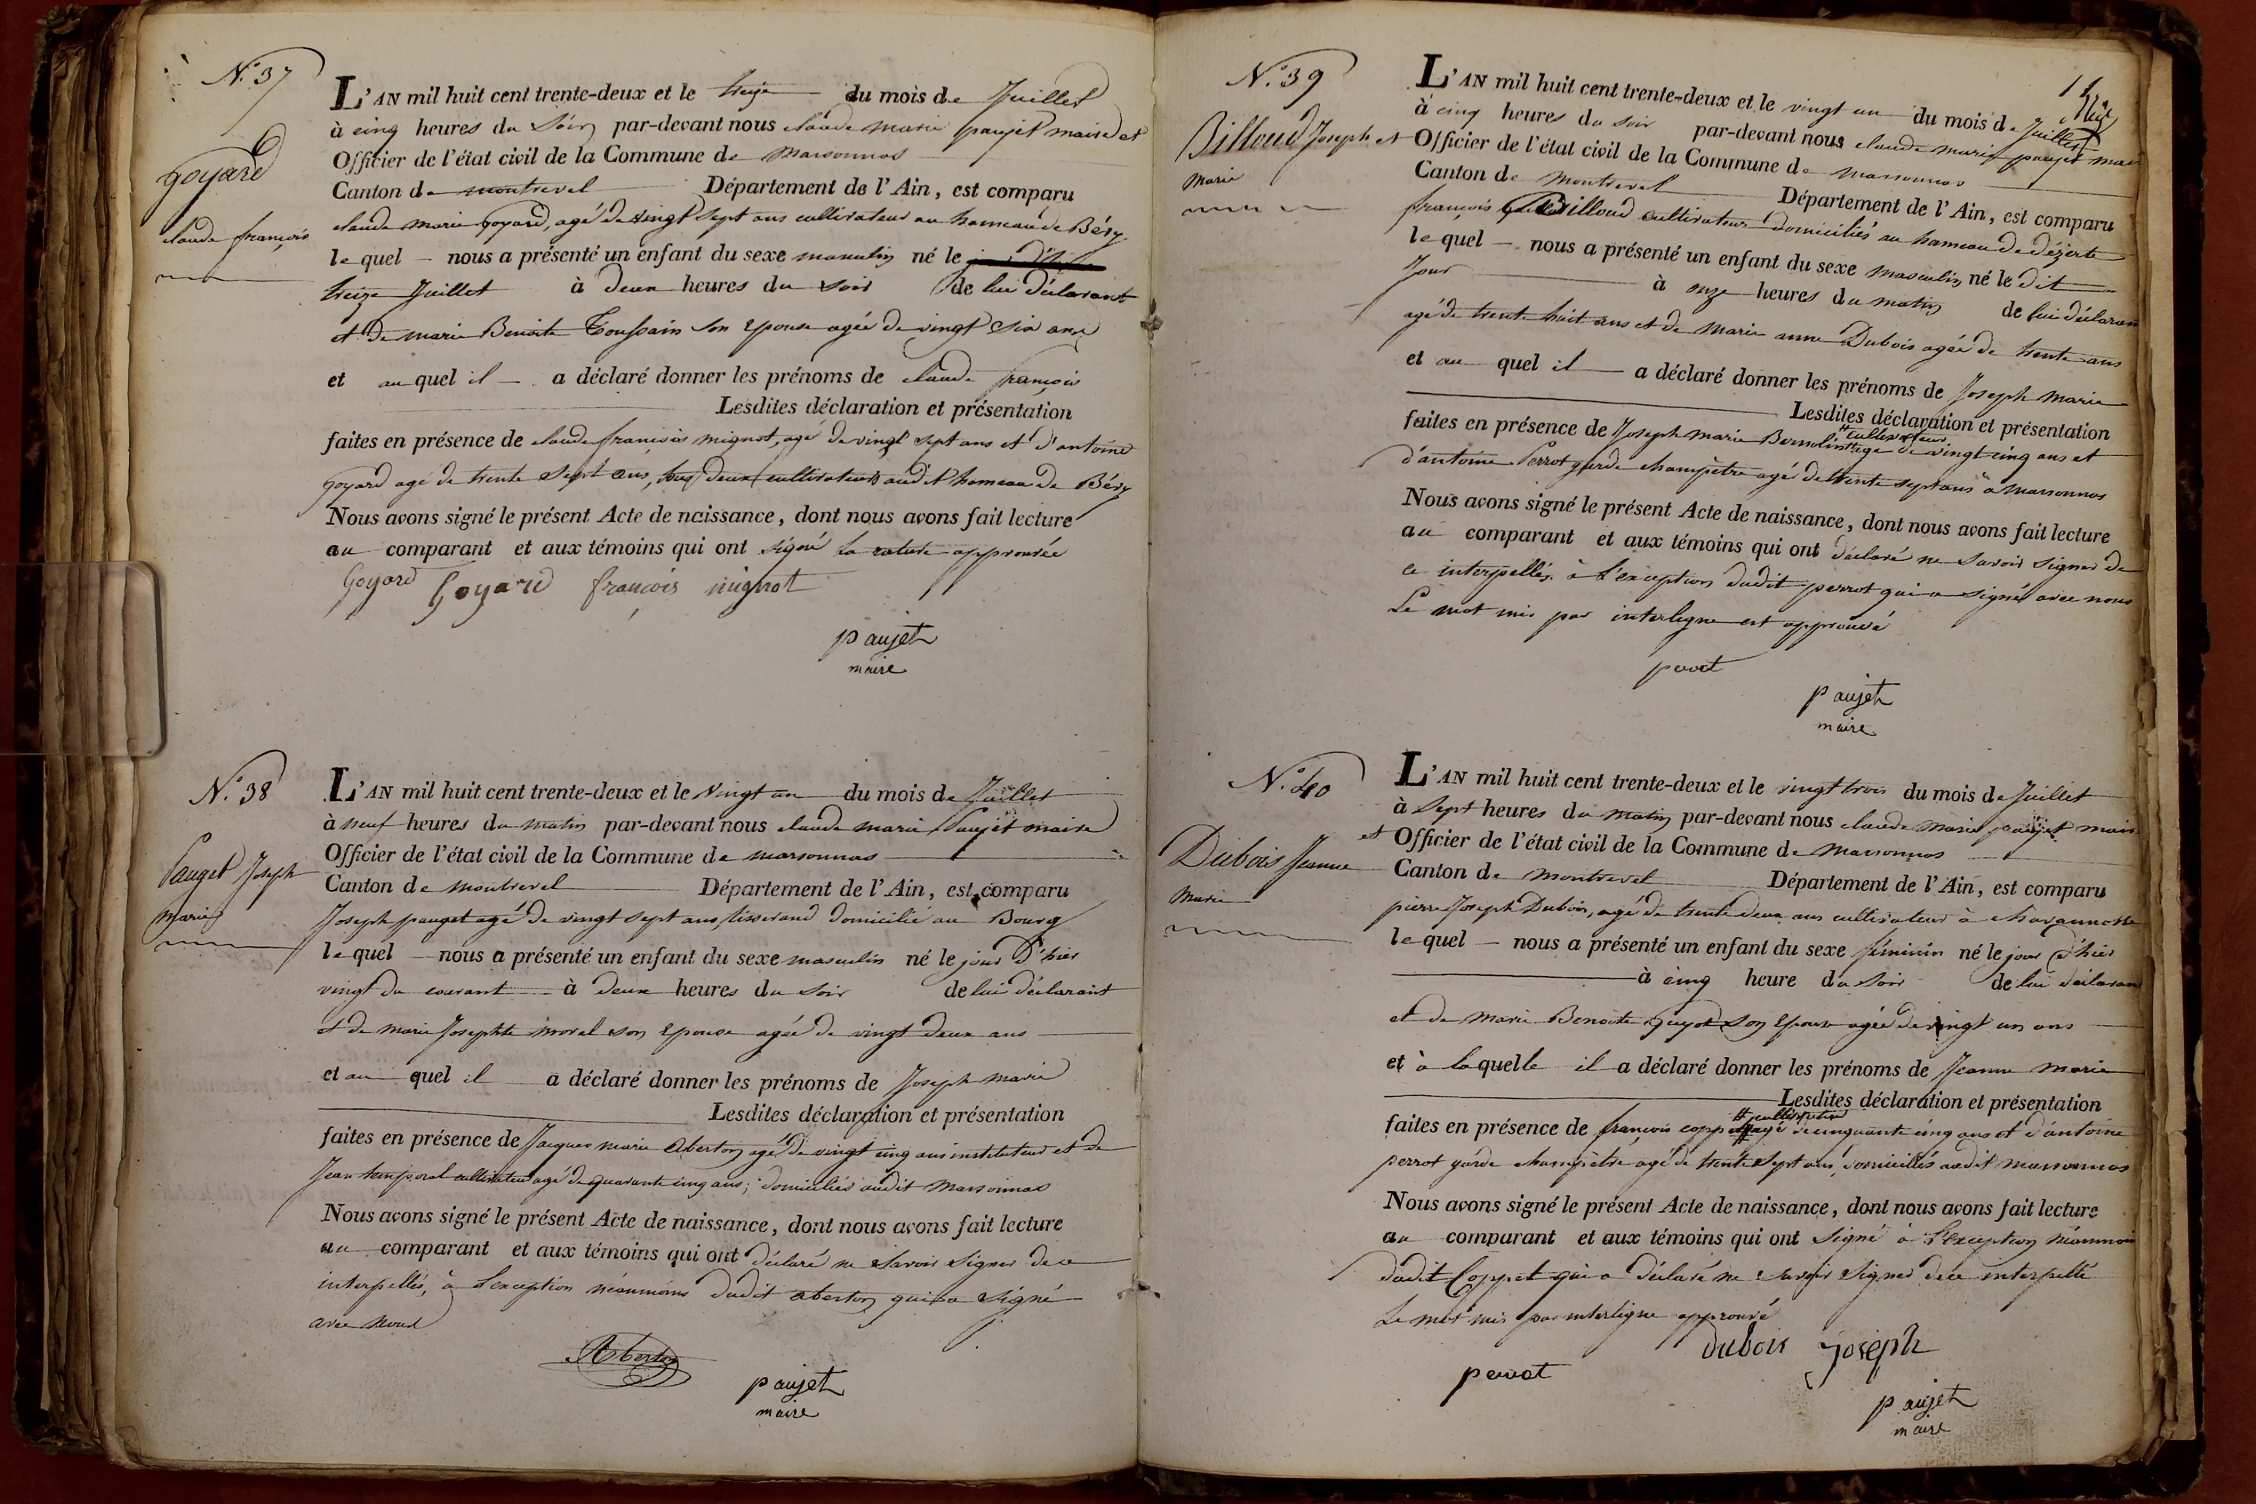 N.° 37
Goyard
claude françois
L'AN mil huit cent trente-deux et le treize du mois de Juillet
à cinq heures du soir par-devant nous claude marie paujet maire et
Officier de l'état civil de la Commune de marsonnas
Canton de montrevel Département de l'Ain, est comparu
claude marie goyard, agé de vingt sept ans cultivateur au hameau de Béry
le quel nous a présenté un enfant du sexe masculin né le
treize Juillet à deux heures du soir de lui déclarant
et de marie Benoite Toussain son Epouse agée de vingt six ans
et au quel il a déclaré donner les prénoms de claude françois
Lesdites déclaration et présentation
faites en présence de claude françois mignot, agé de vingt sept ans et d'antoine
goyard agé de trente sept ans, tous deux cultivateurs audit hameau de Béry
Nous avons signé le présent Acte de naissance, dont nous avons fait lecture
au comparant et aux témoins qui ont signé la rature approuvée
Goyard Goyard françois mignot
paujet
maire
N.° 38
Pauget Joseph
marie
L'AN mil huit cent trente-deux et le vingt un du mois de Juillet
à neuf heures du matin par-devant nous claude marie Paujet maire
Officier de l'état civil de la Commune de marsonnas
Canton de montrevel Département de l'Ain, est comparu
Joseph pauget agé de vingt sept ans tisserand domicilié au Bourg
le quel nous a présenté un enfant du sexe masculin né le jour d'hier
vingt du courant à deux heures du soir de lui déclarant
et de marie Josephte morel son Epouse agée de vingt deux ans
et au quel il a déclaré donner les prénoms de Joseph marie
Lesdites déclaration et présentation
faites en présence de Jacques marie Aberton agé de vingt cinq ans instituteur et de
Jean temporal cultivateur agé de quarante cinq ans; domiciliés audit marsonnas
Nous avons signé le présent Acte de naissance, dont nous avons fait lecture
au comparant et aux témoins qui ont déclaré ne savoir signer de ce
interpellés, à l'exception néanmoins dudit aberton qui a signé
avec nous
Aberton
paujet
maire
N.° 39
Billoud Joseph
marie
L'AN mil huit cent trente-deux et le vingt un du mois de Juillet
à cinq heures du soir par-devant nous claude marie paujet maire
et Officier de l'état civil de la Commune de marsonnas
Canton de montrevel Département de l'Ain, est comparu
françois Billoud cultivateur domiciliés au hameau de dézerte
le quel nous a présenté un enfant du sexe masculin né le dit
Jour à onze heures du matin de lui déclarant
agé de trente huit ans et de marie anne Dubois agée de trente ans
et au quel il a déclaré donner les prénoms de Joseph marie
Lesdites déclaration et présentation
cultivateur
faites en présence de Joseph marie agé de vingt cinq ans et
d'antoine Perrot garde champêtre agé de trente sept ans à marsonnas
Nous avons signé le présent Acte de naissance, dont nous avons fait lecture
au comparant et aux témoins qui ont déclaré ne savoir signer de
ce interpellés à l'exception dudit perrot qui a signé avec nous
Le mot mis par interligne est approuvé
perrot
paujet
maire
N.° 40
Dubois Jeanne
marie
L'AN mil huit cent trente-deux et le vingt trois du mois de Juillet
à sept heures du matin par-devant nous claude marie paujet maire
et Officier de l'état civil de la Commune de marsonnas
Canton de montrevel Département de l'Ain, est comparu
pierre Joseph Dubois, agé de trente deux ans cultivateur à
le quel nous a présenté un enfant du sexe féminin né le jour d'hier
à cinq heure du soir de lui déclarant
et de marie Benoite guyot son Epouse agée de vingt un ans
et à laquelle il a déclaré donner les prénoms de Jeanne marie
Lesdites déclaration et présentation
cultivateur
faites en présence de françois coppet agé de cinquante cinq ans et d'antoine
perrot garde champêtre agé de trente sept ans, domiciliés audit marsonnas
Nous avons signé le présent Acte de naissance, dont nous avons fait lecture
au comparant et aux témoins qui ont signé à l'exception néanmoins
dudit Coppet qui a déclaré ne savoir signer de ce interpellé
Le mot mis par interligne approuvé
dubois joseph
perrot
paujet
maire